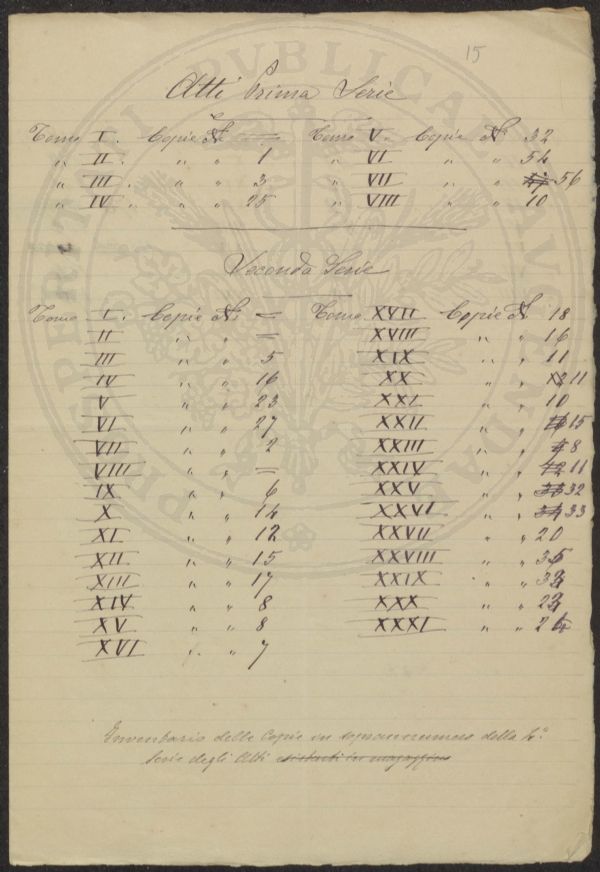 15
Atti Prima Serie
Tomo I. Copie N. = Tomo V. Copie N. 32
" II. " " 1 " VI " " 54
" III. " " 3 " VII " " 56
" IV. " " 25 " VIII " " 10
Seconda Serie
Tomo I. Copie N. = Tomo XVII Copie N. 18
II " " = XVIII " " 16
III " " 5 XIX " " 11
IV " " 16 XX " " 11
V " " 23 XXI " " 10
VI " " 27 XXII " " 15
VII " " 2 XXIII " " 8
VIII " " = XXIV " " 11
IX " " 6 XXV " " 32
X " " 14 XXVI " " 33
XI " " 12 XXVII " " 20
XII " " 15 XXVIII " " 35
XIII " " 17 XXIX " "
XIV " " 8 XXX " "
XV " " 8 XXXI " "
XVI " " 7
Inventario delle Copie in soprannumero della
Serie degli Atti esistenti in magazzino
PROSPERITATI PVBLICAE AVGENDAE